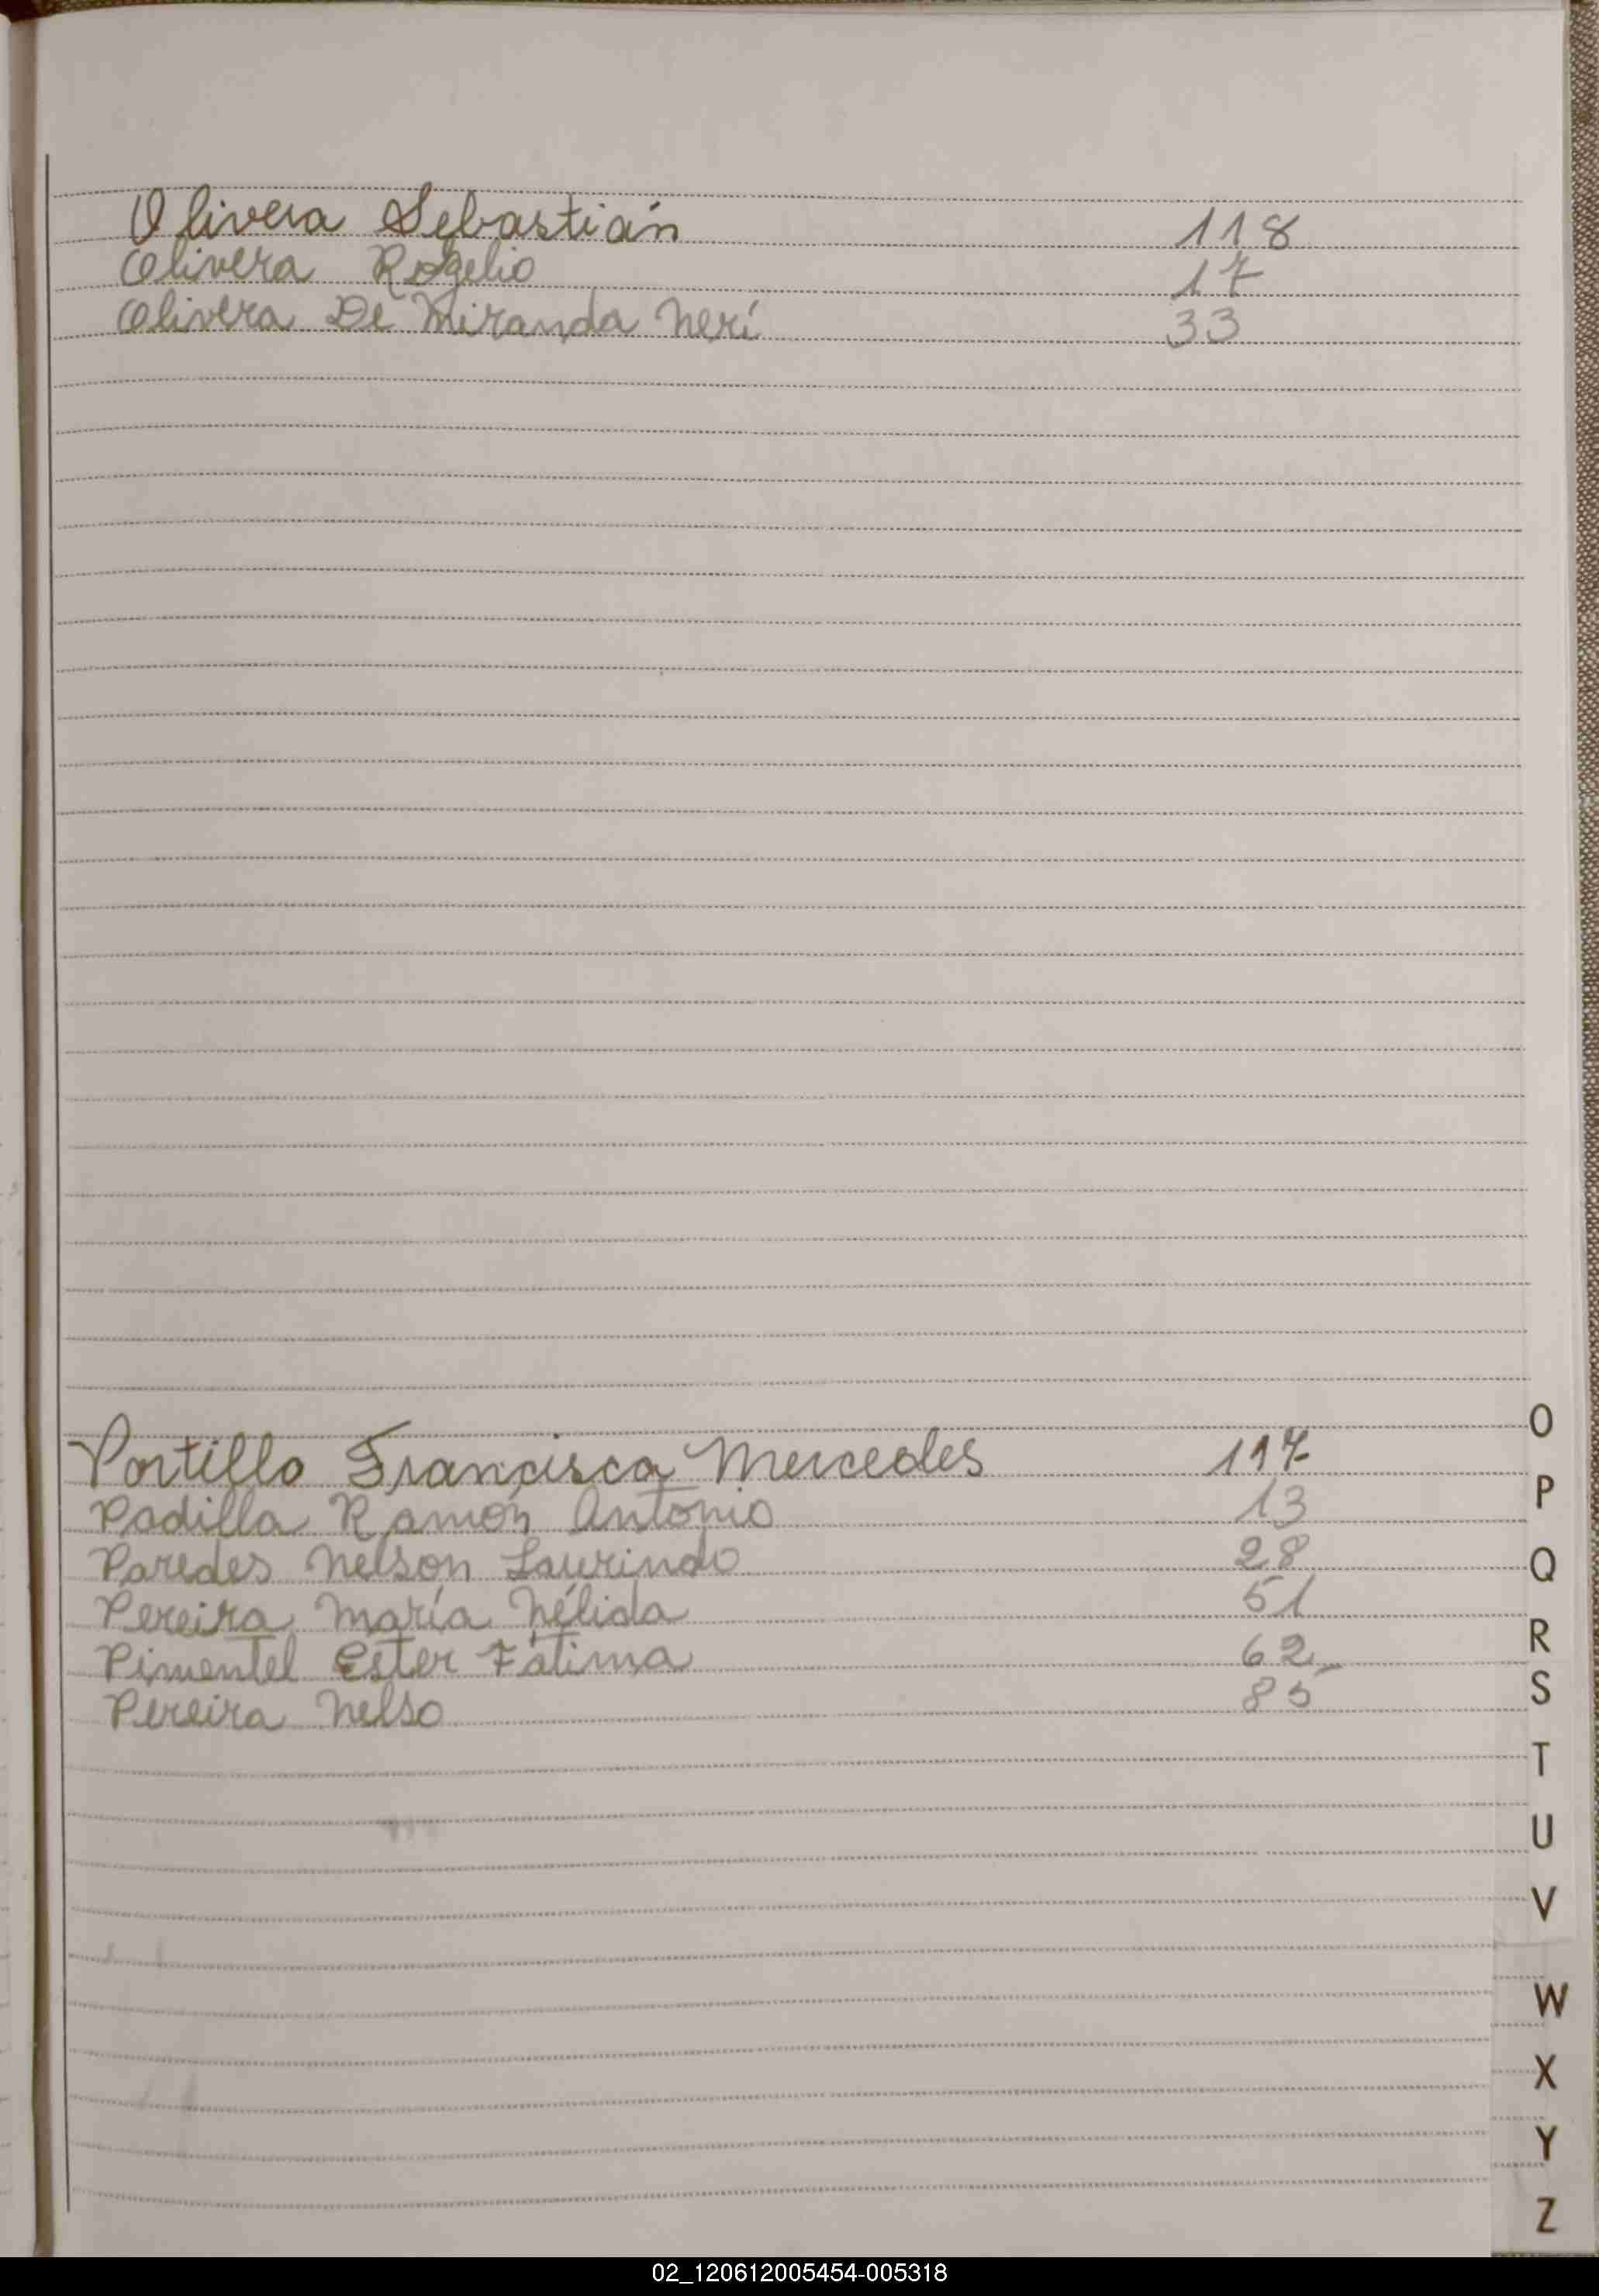 Olivera Sebastián 118
Olivera Rogelio 17
Olivera De Miranda Nerí 33
Portillo Francisca Mercedes 117
Padilla Ramón Antonio 13
Paredes Nelson Laurindo 28
Pereira María Nélida 51
Pimentel Ester Fátima 62
Pereira Nelso 85
O
P
Q
R
S
T
U
V
W
X
Y
Z
02_120612005454-005318